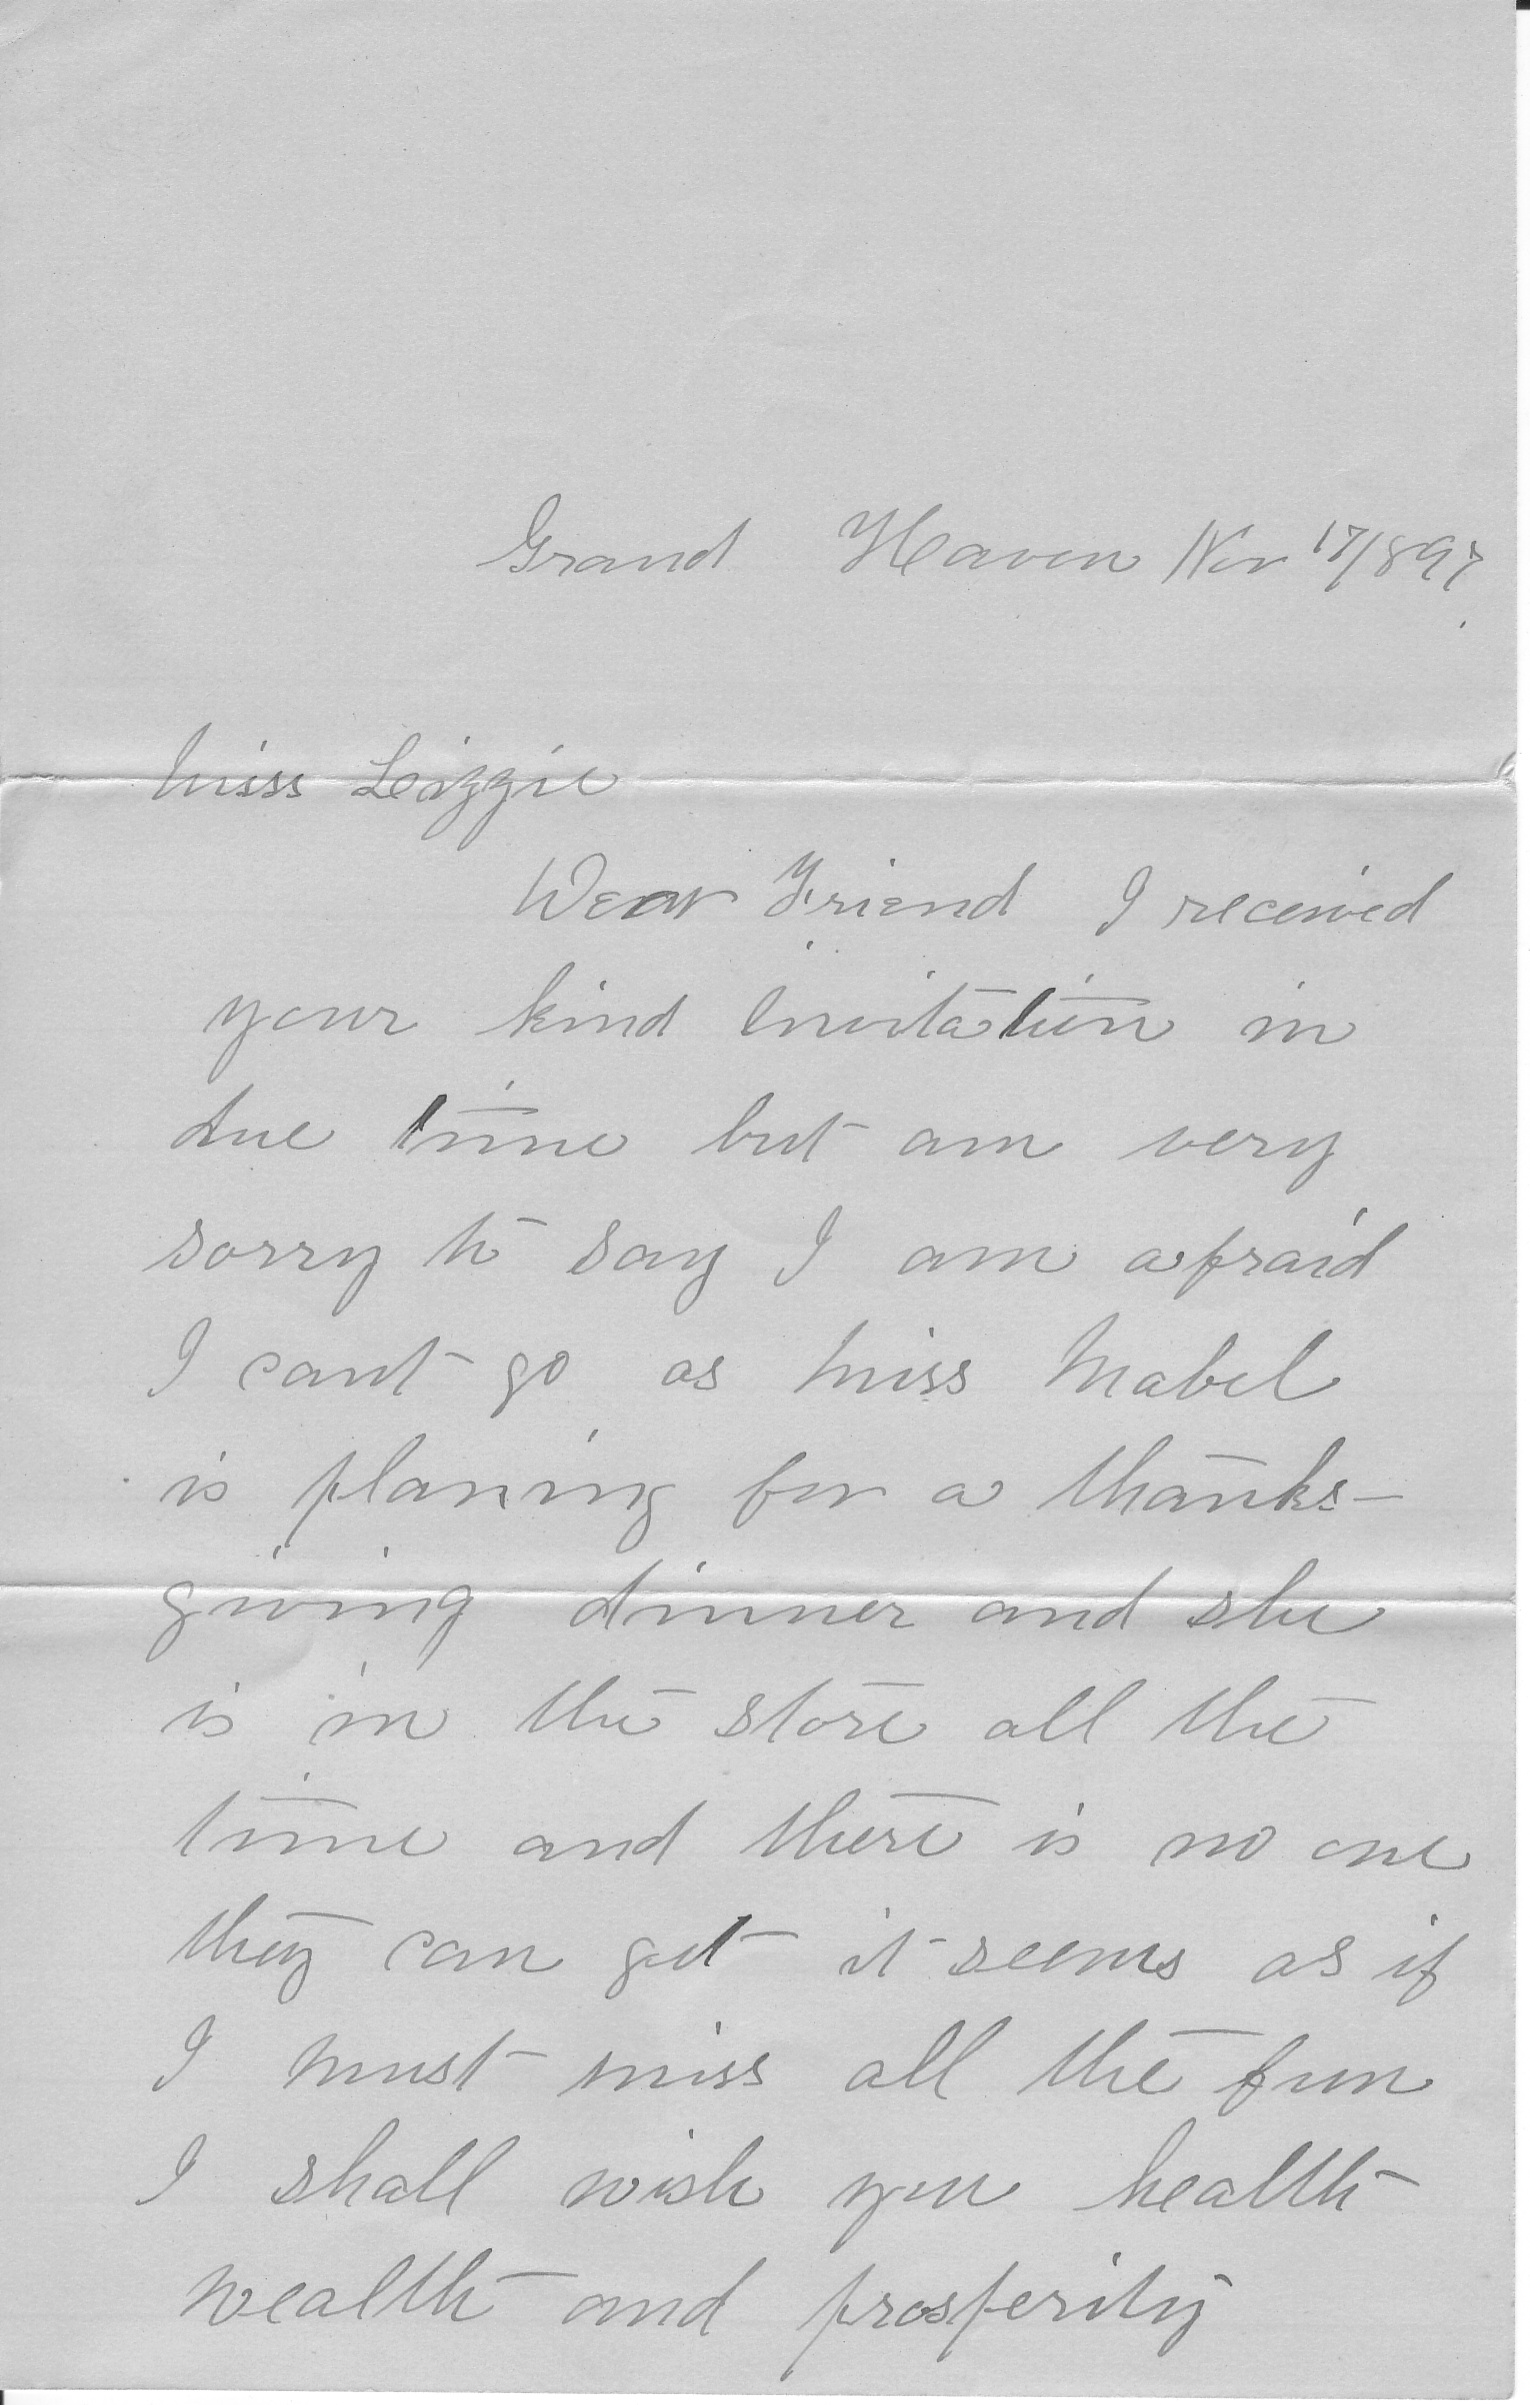 Grand Haven Nov 17/897
Miss Lizzie
Dear Friend I received
your kind Invitation in
due time but am very
sorry to say I am afraid
I cant go as Miss Mabel
is planing for a thanks-
giving dinner and she
is in the store all the
time and there is no one
they can get it seems as if
I must miss all the fun
I shall wish you health
wealth and prosperity